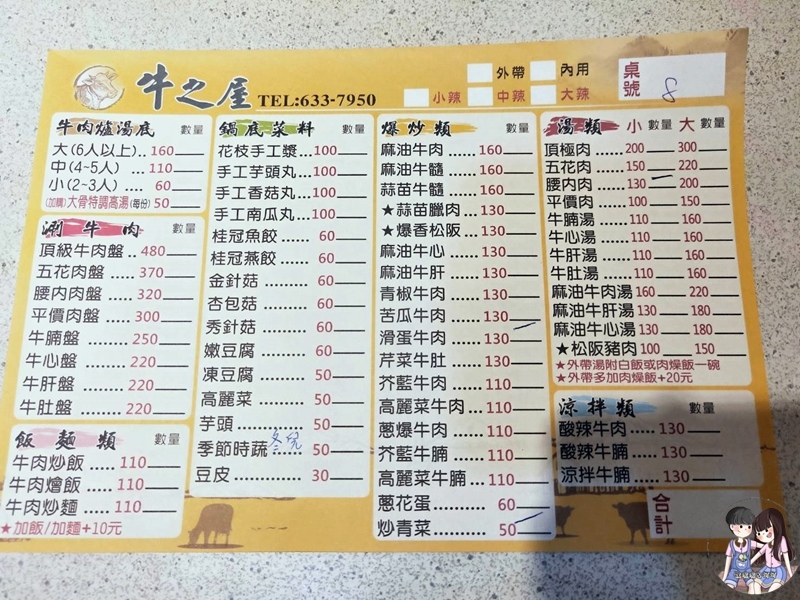 牛之屋 TEL:633-7950
外帶 內用
小辣 中辣 大辣
桌號 8
牛肉爐湯底 數量
大(6人以上)..160
中(4~5人) ...110
小(2~3人) .... 60
(加購)大骨特調高湯(每份) 50
涮牛肉 數量
頂級牛肉盤..480
五花肉盤 ....370
腰內肉盤 ....320
平價肉盤 ....300
牛腩盤 .......250
牛心盤 .......220
牛肝盤 .......220
牛肚盤 .......220
飯麵類 數量
牛肉炒飯 .....110
牛肉燴飯 .....110
牛肉炒麵 .....110
★加飯/加麵+10元
鍋底菜料 數量
花枝手工漿...100
手工芋頭丸...100
手工香菇丸...100
手工南瓜丸...100
桂冠魚餃 ...... 60
桂冠燕餃 ...... 60
金針菇 ......... 60
杏包菇 ......... 60
秀針菇 ......... 60
嫩豆腐 ......... 60
凍豆腐 ......... 50
高麗菜 ......... 50
芋頭 ............ 50
季節時蔬 ...... 50
豆皮 ............ 30
爆炒類 數量
麻油牛肉 ......160
麻油牛髓 ......160
蒜苗牛髓 ......160
★蒜苗臘肉 ...130
★爆香松阪 ...130
麻油牛心 ......130
麻油牛肝 ......130
青椒牛肉 ......130
苦瓜牛肉 ......130
滑蛋牛肉 ......130
芹菜牛肚 ......130
芥藍牛肉 ......110
高麗菜牛肉...110
蔥爆牛肉 ......110
芥藍牛腩 ......110
高麗菜牛腩...110
蔥花蛋 ......... 60
炒青菜 ......... 50
湯類 小 數量 大 數量
頂極肉 ...... 200 300
五花肉 ...... 150 220
腰內肉 ...... 130 200
平價肉 ...... 100 150
牛腩湯 ...... 110 160
牛心湯 ...... 110 160
牛肝湯 ...... 110 160
牛肚湯 ...... 110 160
麻油牛肉湯 160 220
麻油牛肝湯 130 180
麻油牛心湯 130 180
★松阪豬肉 100 150
★外帶湯附白飯或肉燥飯一碗
★外帶多加肉燥飯+20元
涼拌類 數量
酸辣牛肉 ..... 130
酸辣牛腩 ..... 130
涼拌牛腩 ..... 130
合計